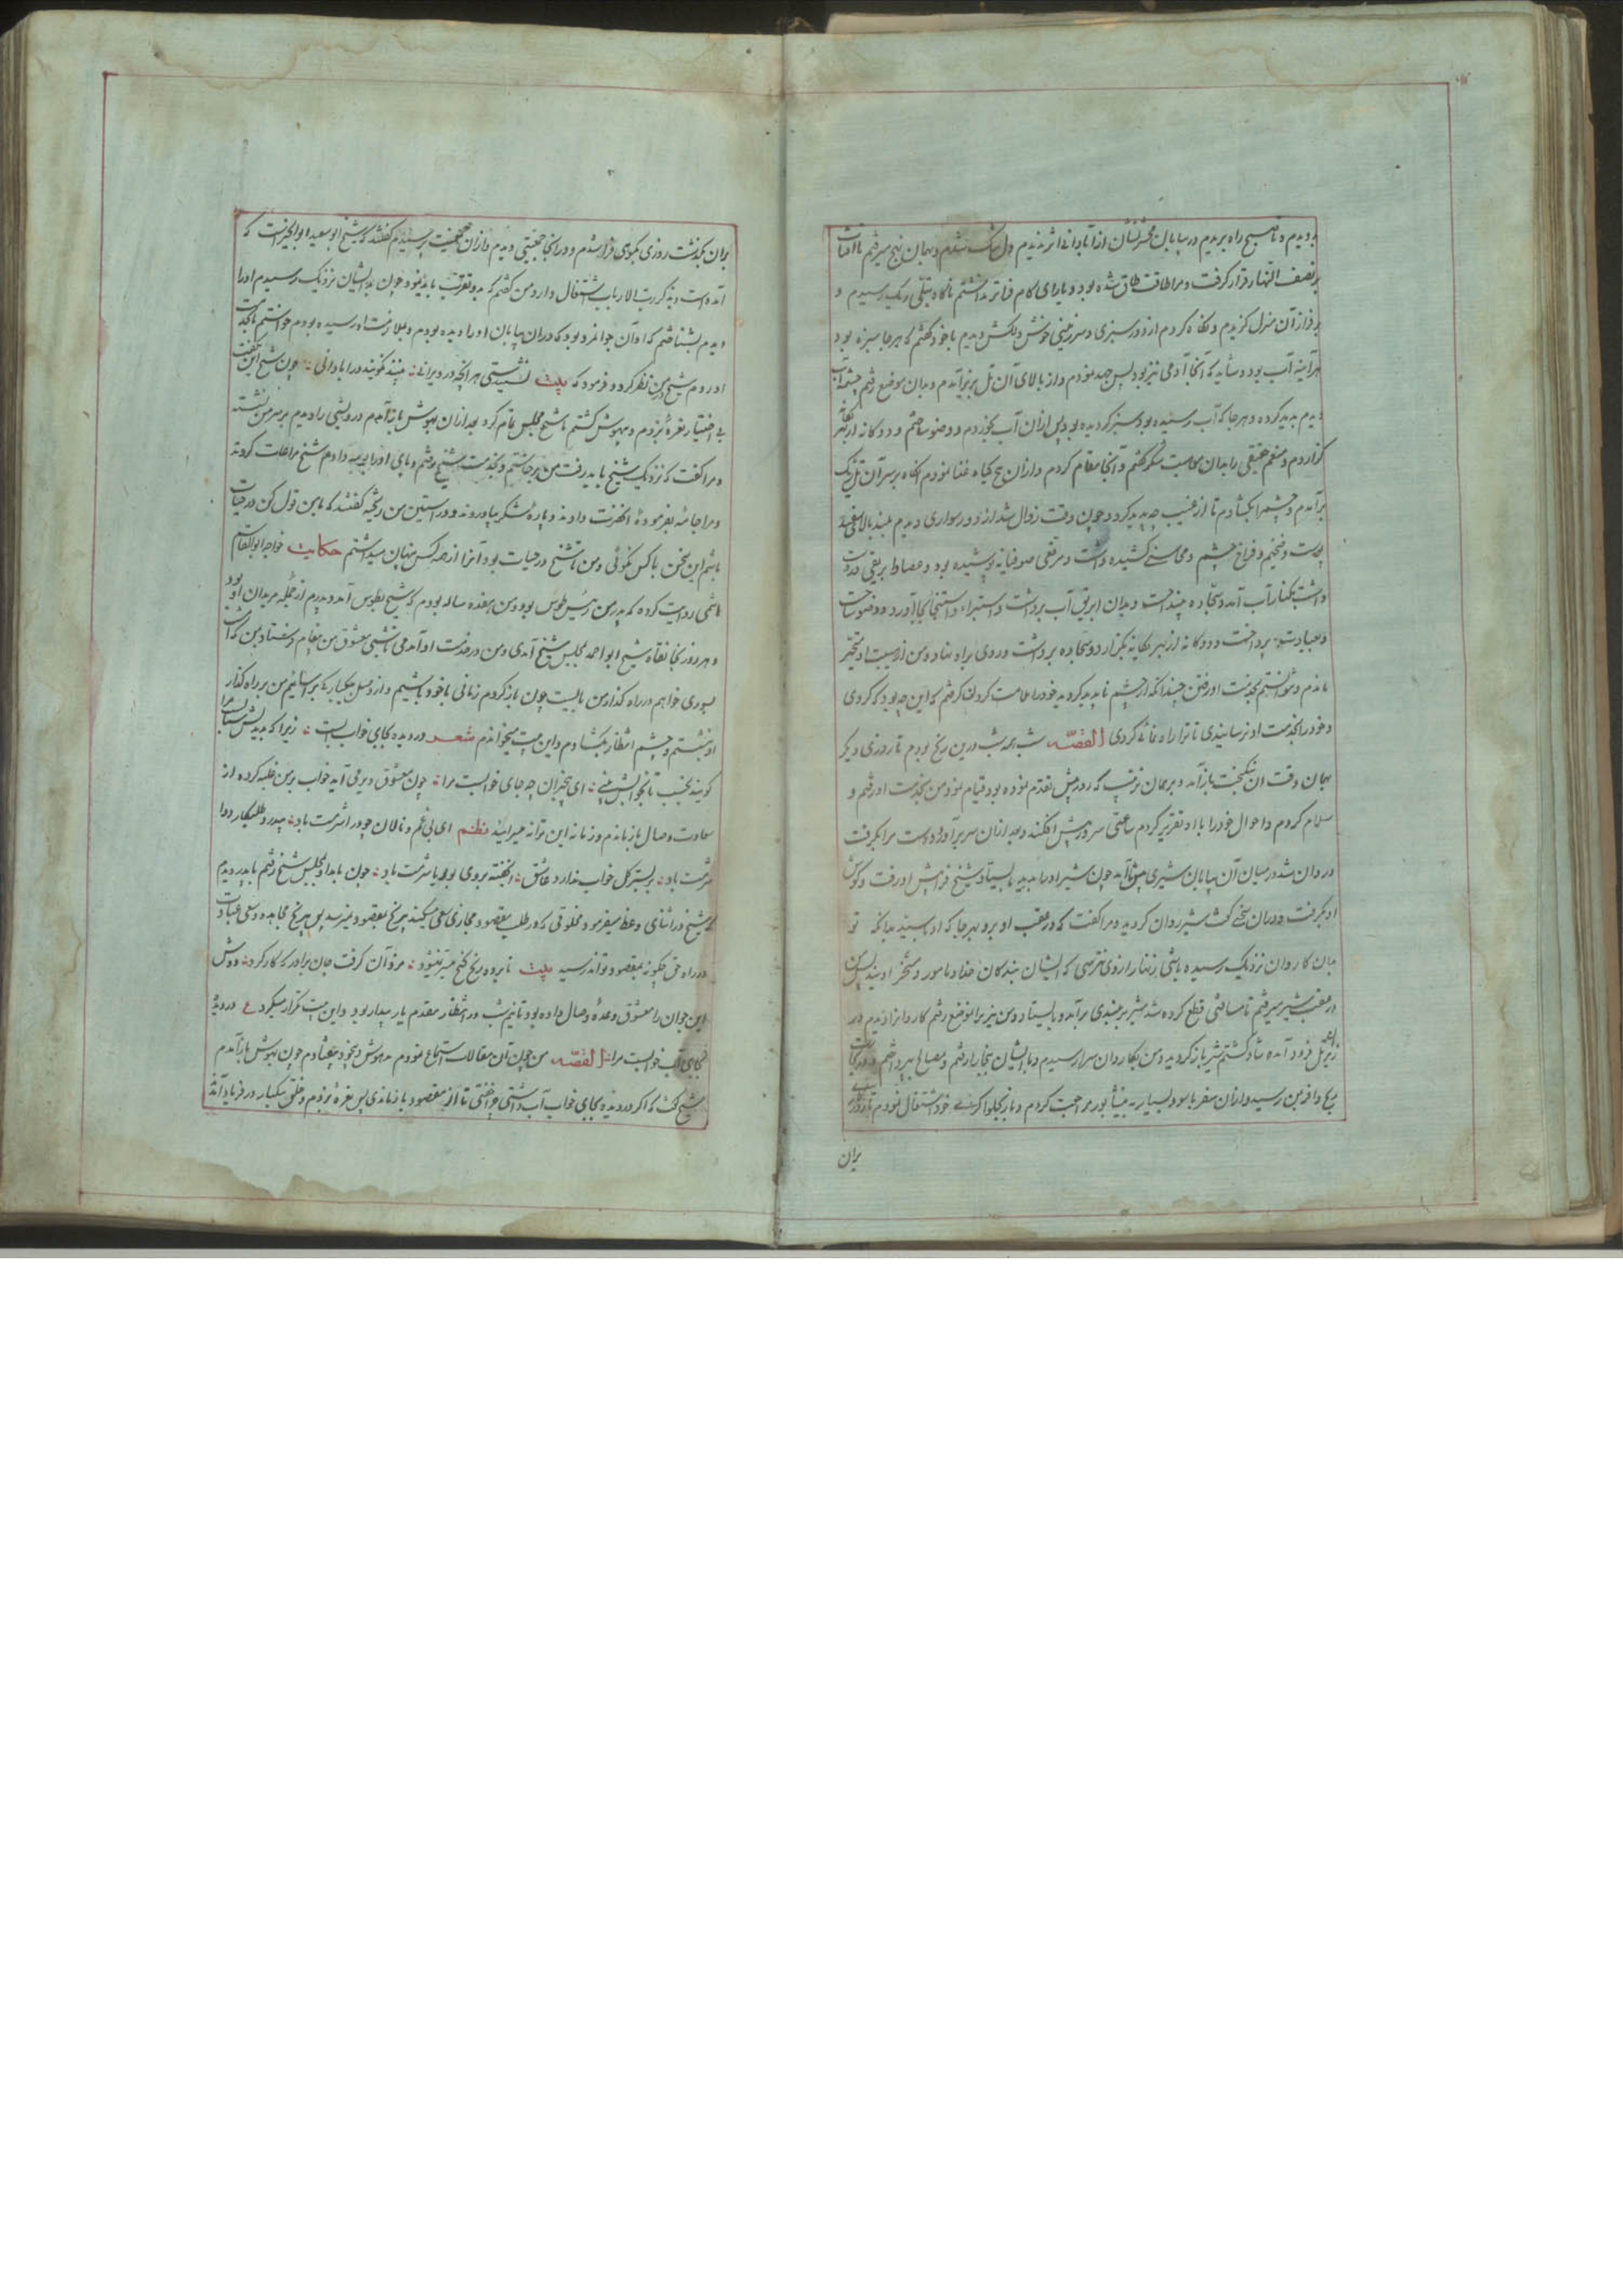 بدویدم و تا صبح راه بریدم در بیابان محشرنشان از آبادانی اثر ندیدم دل تنگ شدم و بهمان نهج میرفتم تا آفتاب
بر نصف النهار قرار گرفت و مرا طاقت طاق شده بود و یارای کام فراتر نداشتم ناگاه بتلی ریگ رسیدم و
بر فراز آن منزل گزیدم و نگاه کردم از دور سبزی و سرزمینی خوش و دلکش دیدم با خود گفتم که هر جا سبزه بود
هر آینه آب بود و شاید که آنجا آدمی نیز بود پس جهد نمودم و از بالای آن تل بزیر آمدم و بدان موضع رفتم چشمه آب
دیدم پدید کرده و هر جا که آب رسیده بود سبز گردیده بود پس از آن آب بخوردم و وضو ساختم و دوگانه از بهر یگانه
گزاردم و منعم حقیقی را بدان شکر گفتم و آنجا مقام کردم و از آن بیخ گیاه غذا نمودم آنگاه بر سر آن تل ریگ
بر آمدم و چشم را بگشادم تا از غیب چه پدید گردد چون وقت زوال شد از دور سواری دیدم بلند بالا سفید
پوست و ضخیم و فراخ چشم و محاسنی کشیده داشت و مرقعی صوفیانه پوشیده بود و عصا و ابریقی در دست
داشت بکنار آب آمد و سجاده بینداخت و بدان ابریق آب برداشت و استبراء و استنجا بجا آورد و وضو ساخت
و بعبادت پرداخت و دوگانه از بهر یگانه بگزارد و سجاده برداشت و روی براه نهاد و من از هیبت او متحیر
ماندم و نتوانستم بخدمت او رفتن چندانکه از چشم ناپدید گردید خود را ملامت کردن گرفتم که این چه بود که کردی
و خود را بخدمت او نرسانیدی تا ترا راه نمائی کردی القصّه شب همه شب درین رنج بودم تا روزی دیگر
بهمان وقت آن نیکبخت باز آمد و بر همان ترتیب که روز پیش تقدم نموده بود قیام نمود من بخدمت او رفتم و
سلام کردم و احوال خود را با او تقریر کردم ساعتی سر در پیش افکند و بعد از آن سر بر آورد و دست مرا بگرفت
و روان شد در میان آن بیابان شیری پیش آمد چون شیر او را بدید بایستاد شیخ فراپیش او رفت و گوش
او بگرفت و در آن سخنی گفت شیر روان گردید و مرا گفت که در عقب او برو بهر جا که او بایستد بدانکه تو
بدان کاروان نزدیک رسیده باشی زنهار از وی نترسی که ایشان بندگان خدا و مامور و مسخر اویند پس من
در عقب شیر میرفتم تا مسافتی قطع کرده شد شیر بر بلندی بر آمد و بایستاد و من نیز بر آن موضع رفتم کاروانرا دیدم در
زیر تل فرود آمده شاد گشتم شیر باز گردید و من بکاروان سرا رسیدم و با ایشان ببخارا رفتم و مصالح بپرداختم و در آنجا
ربح وافر بمن رسید و از آن سفر با سود بسیار به نیشابور مراجعت کردم و باز بحلواگری خود اشتغال نمودم تا روزی
بران
بران بگذشت روزی بکوی فرا شدم و در آنجا جمعیتی دیدم و از آن جمعیت پرسیدم گفتند که شیخ ابو سعید ابو الخیرست که
آمده است و بذکر رب الارباب اشتغال دارد من گفتم که بدو تقرب باید نمود چون بدایشان نزدیک رسیدم او را
دیدم بشناختم که او آن جوانمرد بود که در آن بیابان او را دیده بودم و بملازمت او رسیده بودم خواستم تا بخدمت
او در روم شیخ در من نظر کرد و فرمود که بیت نشنیدستی هر آنچه در ویرانی بینند نگویند در آبادانی چون شیخ این بگفت
بی اختیار نعرهٔ بزدم و بیهوش گشتم تا شیخ مجلس تمام کرد بعد از آن بهوش باز آمدم درویشی را دیدم بر سر من نشسته
و مرا گفت که نزدیک شیخ باید رفت من برخاستم و بخدمت شیخ رفتم و پای او را بوسه دادم شیخ مراعات کردند
و مرا جامه بفرموده آنحضرت دادند و پارهٔ شکر بیاوردند و در آستین من ریخته گفتند که با من قول کن در حیات
باشم این سخن با کس نگوئی و من تا شیخ در حیات بود آنرا از همه کس پنهان میداشتم حکایت خواجه ابو القاسم
هاشمی روایت کرده که پدر من رئیس طوس بود و من هفده ساله بودم که شیخ بطوس آمد و پدرم از جمله مریدان او بود
و هر روز بخانقاه شیخ ابو احمد بمجلس شیخ آمدی و من در خدمت او آمدمی تا شبی معشوق من پیغام فرستاد بمن که امشب
بسوری خواهم در راه گذار من بایست چون باز گردم زمانی با خود باشیم و از وصل یکدیگر بر آسائیم من بر راه گذار
او نشستم و چشم انتظار بگشادم و این بیت میخواندم شعر در دیده بجای خواب آبست زیرا که بدیدنش شتابست مرا
گویند بخسب تا بخوابش بینی ای بیخبران چه جای خوابست مرا چون معشوق دیر می آید خواب بر من غلبه کرده از
سعادت وصال باز ماندم و زمانه این ترانه میسرائید نظم ای بی غم و نالان چو درا شرمت باد بیدرد و طلبکار دوا
شرمت باد بر بستر گل خواب ندارد عاشق ای خفته بروی بوریا شرمت باد چون بامداد بمجلس شیخ رفتم با پدر دیدم
که شیخ در اثنای وعظ میفرمود مخلوقی که در طلب مقصود مجازی سعی میکند بی رنج بمقصود نمیرسد پس بی رنج مجاهده و سعی عبادت
در راه حق چگونه بمقصود تواند رسید بیت نابرده رنج گنج میسر نمیشود مزد آن گرفت جان برادر که کار کرد دوش
این جوان را معشوق وعدهٔ وصال داده بود تا نیم شب در انتظار مقدم یار بیدار بود و این بیت تکرار میکرد ع در دیدهٔ
بجای آب خوابست مرا القصّه من چون آن مقالات استماع نمودم مدهوش و بیخود بیفتادم چون بهوش باز آمدم
شیخ گفت که اگر در دیده بجای خواب آب داشتی چرا خفتی تا از مقصود باز ماندی پس نعره بزدم و خلق بیکبار در فریاد آمدند